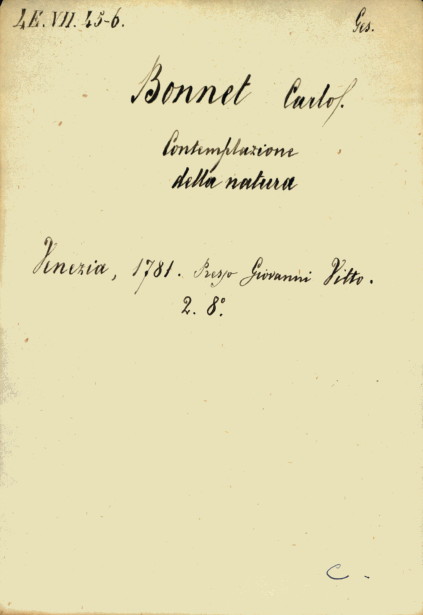 4E. VII. 45-6.
Ges.
Bonnet Carlo.
Contemplazione
della natura
Venezia, 1781. Presso Giovanni Vitto.
2. 8°.
C.